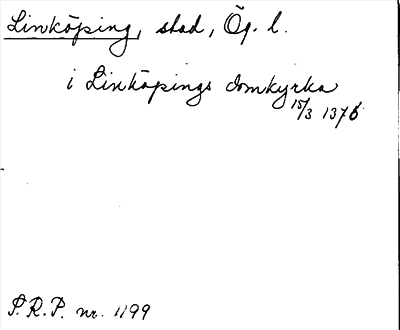 Linköping, stad, Ög. l.
i Linköpings domkyrka
15/3 1376
S.R.P. nr. 1199